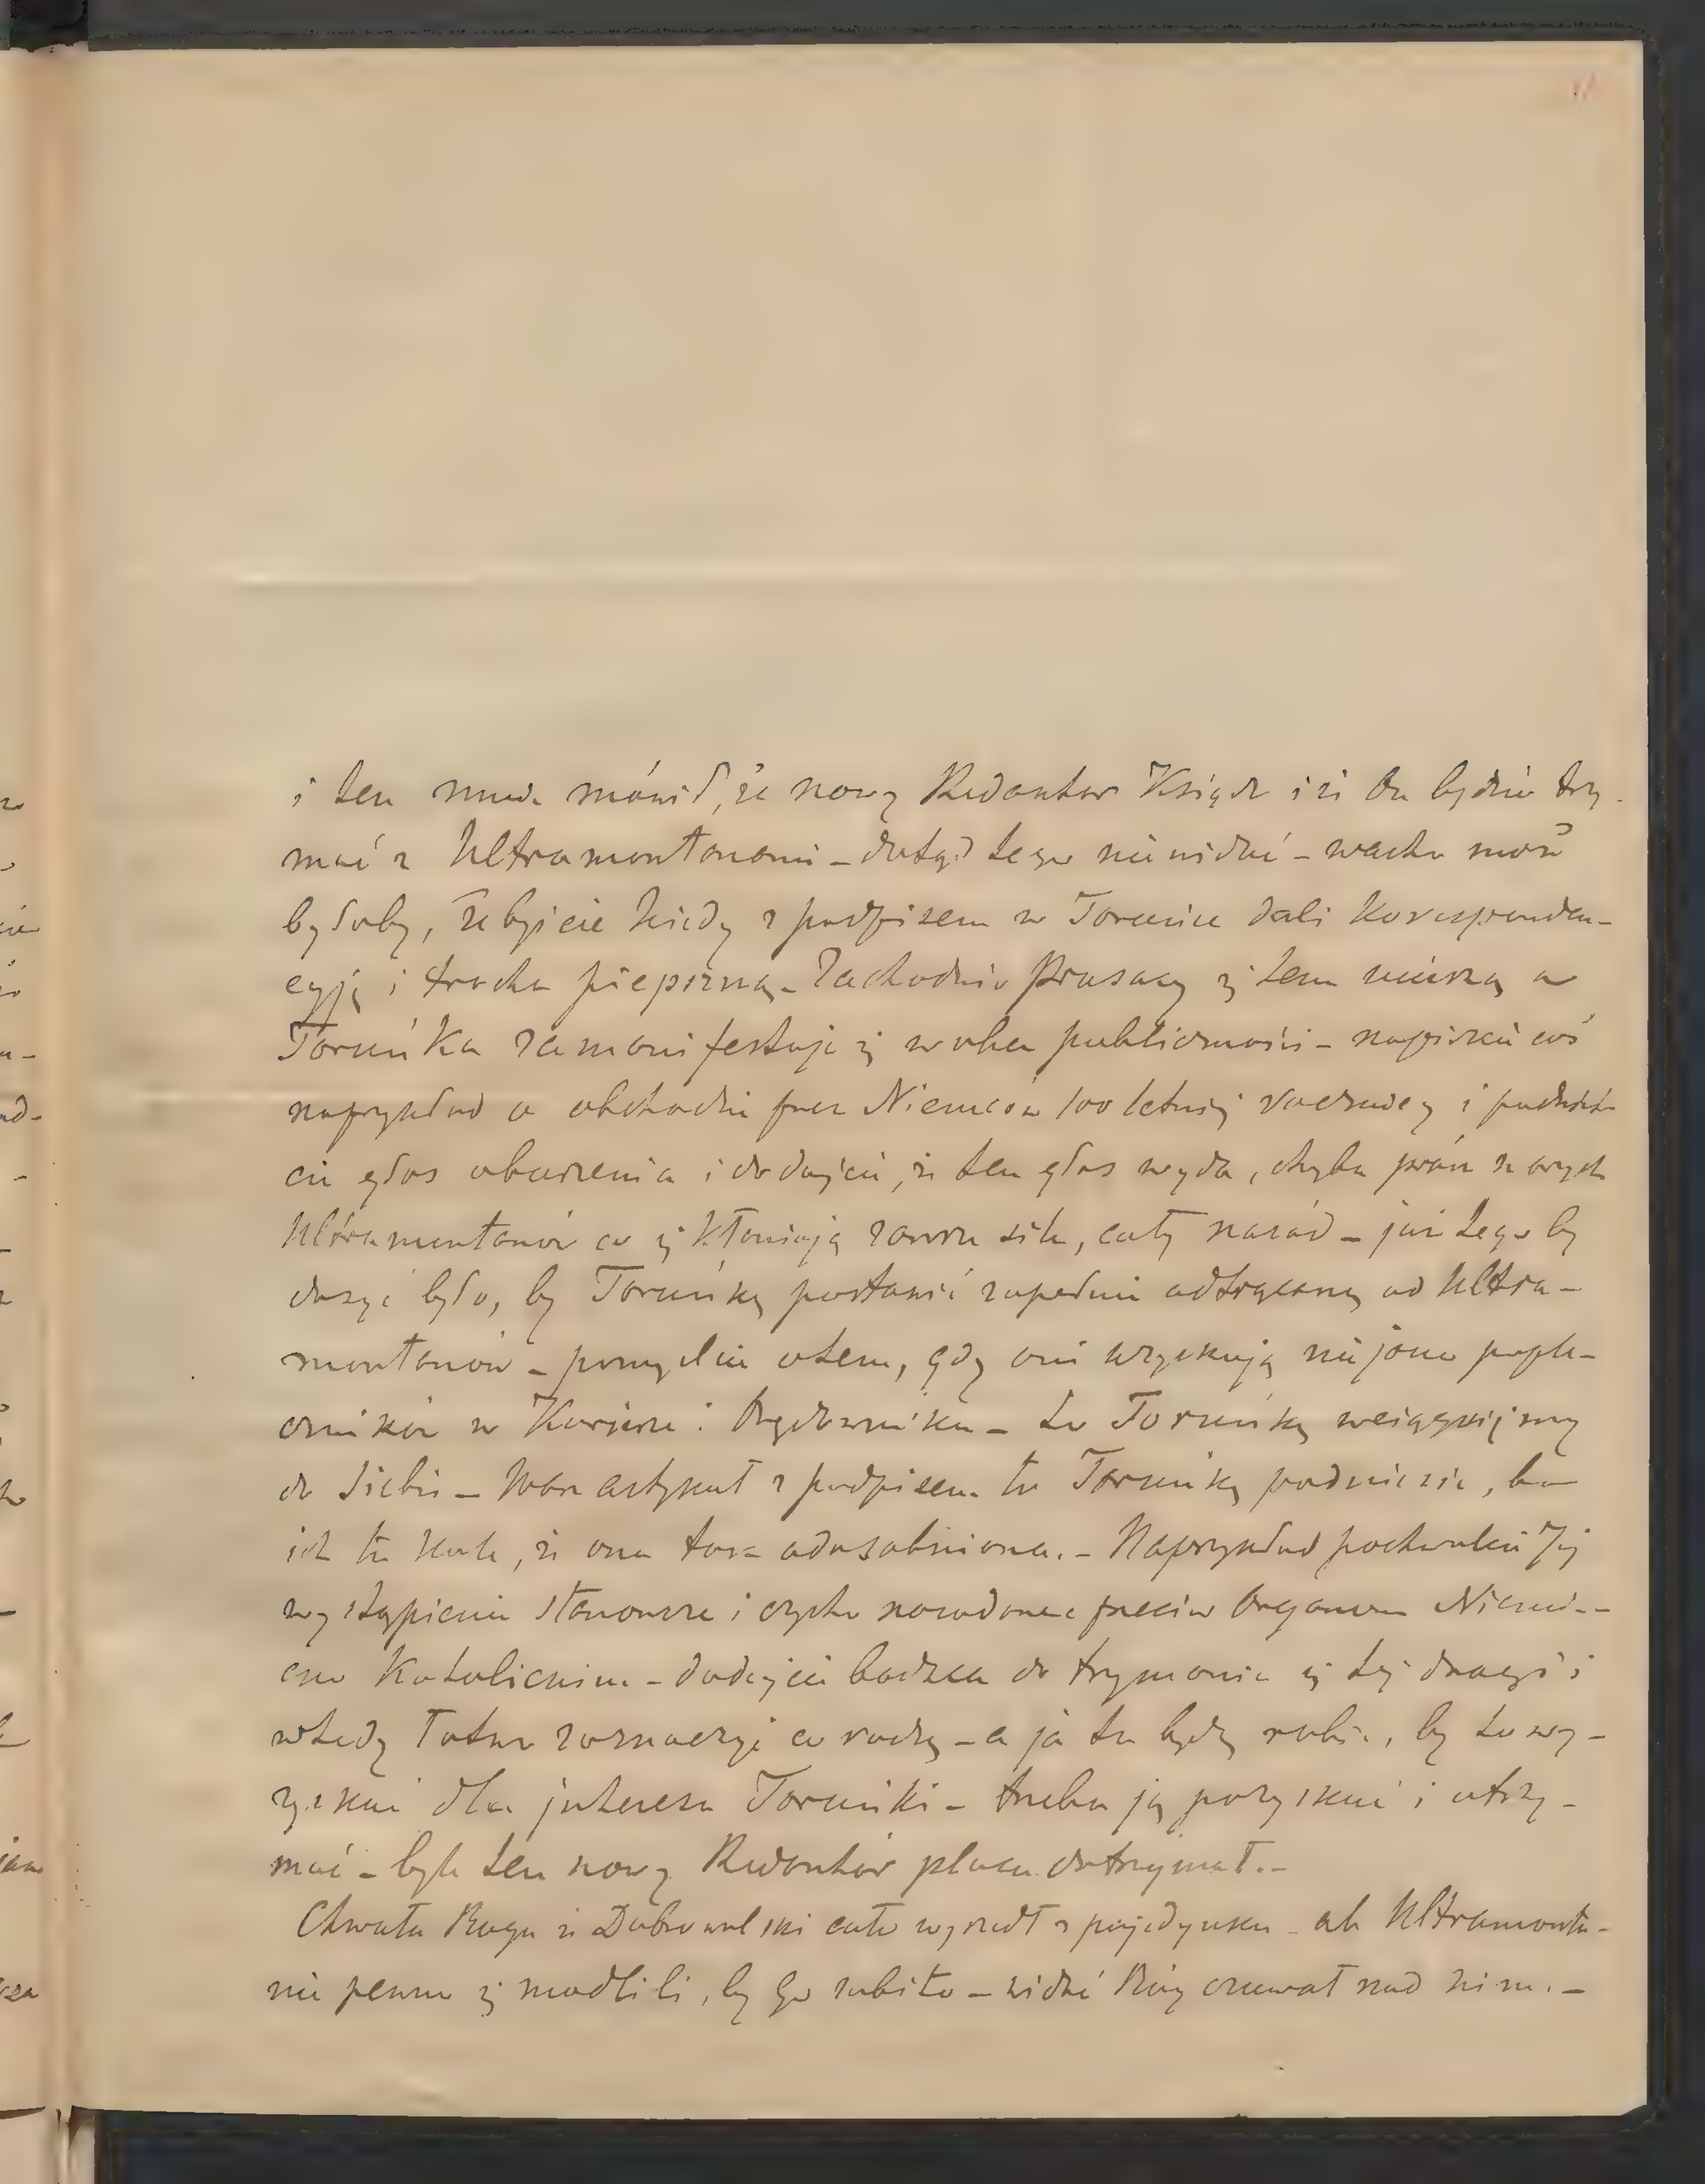 i ten mnie mówił, że nowy Redaktor Ksiądz i że On będzie trzy-
mać z Ultramontanami – dotąd tego nie widzić – warto może
byłoby, żebyście kiedy z podpisem w Toruńce dali Koresponden-
cyją i trocha pieprzną – Zachodnio Prusacy się tem ucieszą a
Toruńka zamanifestuje się wobec publiczności – napiszcie coś
naprzykład o obchodzie przez Niemców 100 letniej rocznicy i podnieś-
cie głos oburzenia i dodajcie, że ten głos wyda, chyba prócz starych
Ultramontanów co się kłaniają zawsze sile, cały naród – już tego by
dosyć było, by Toruńkę postawić zupełnie odtrąconą od Ultra-
montanów – pomyślcie o tem, gdy oni wzyskują niejako pople-
czników w Kurjerze i Orędowniku – to Toruńkę wciągnijmy
do siebie – Wasz artykuł z podpisem tu Toruńkę podniesie, bo
ich tu kole, że ona tak odosobniona. – Naprzykład pochwalcie Jej
wystąpienie stanowcze i czysto narodowe przeciw Organom Niemie-
cko Katolickim – dodajcie bodzca do trzymania się tej drogi i
wtedy łatwo zaznaczyć co radzę – a ja tu będę robić, by to wy-
zyskać dla interesu Toruńki – trzeba ją pozyskać i utrzy-
mać – byle ten nowy Redaktor placu dotrzymał. –
Chwała Bogu że Dobrowolski cało wyszedł z pojedynku – ale Ultramonta-
nie pewno się modlili, by go zabito – widzić Bóg czuwał nad nim. –